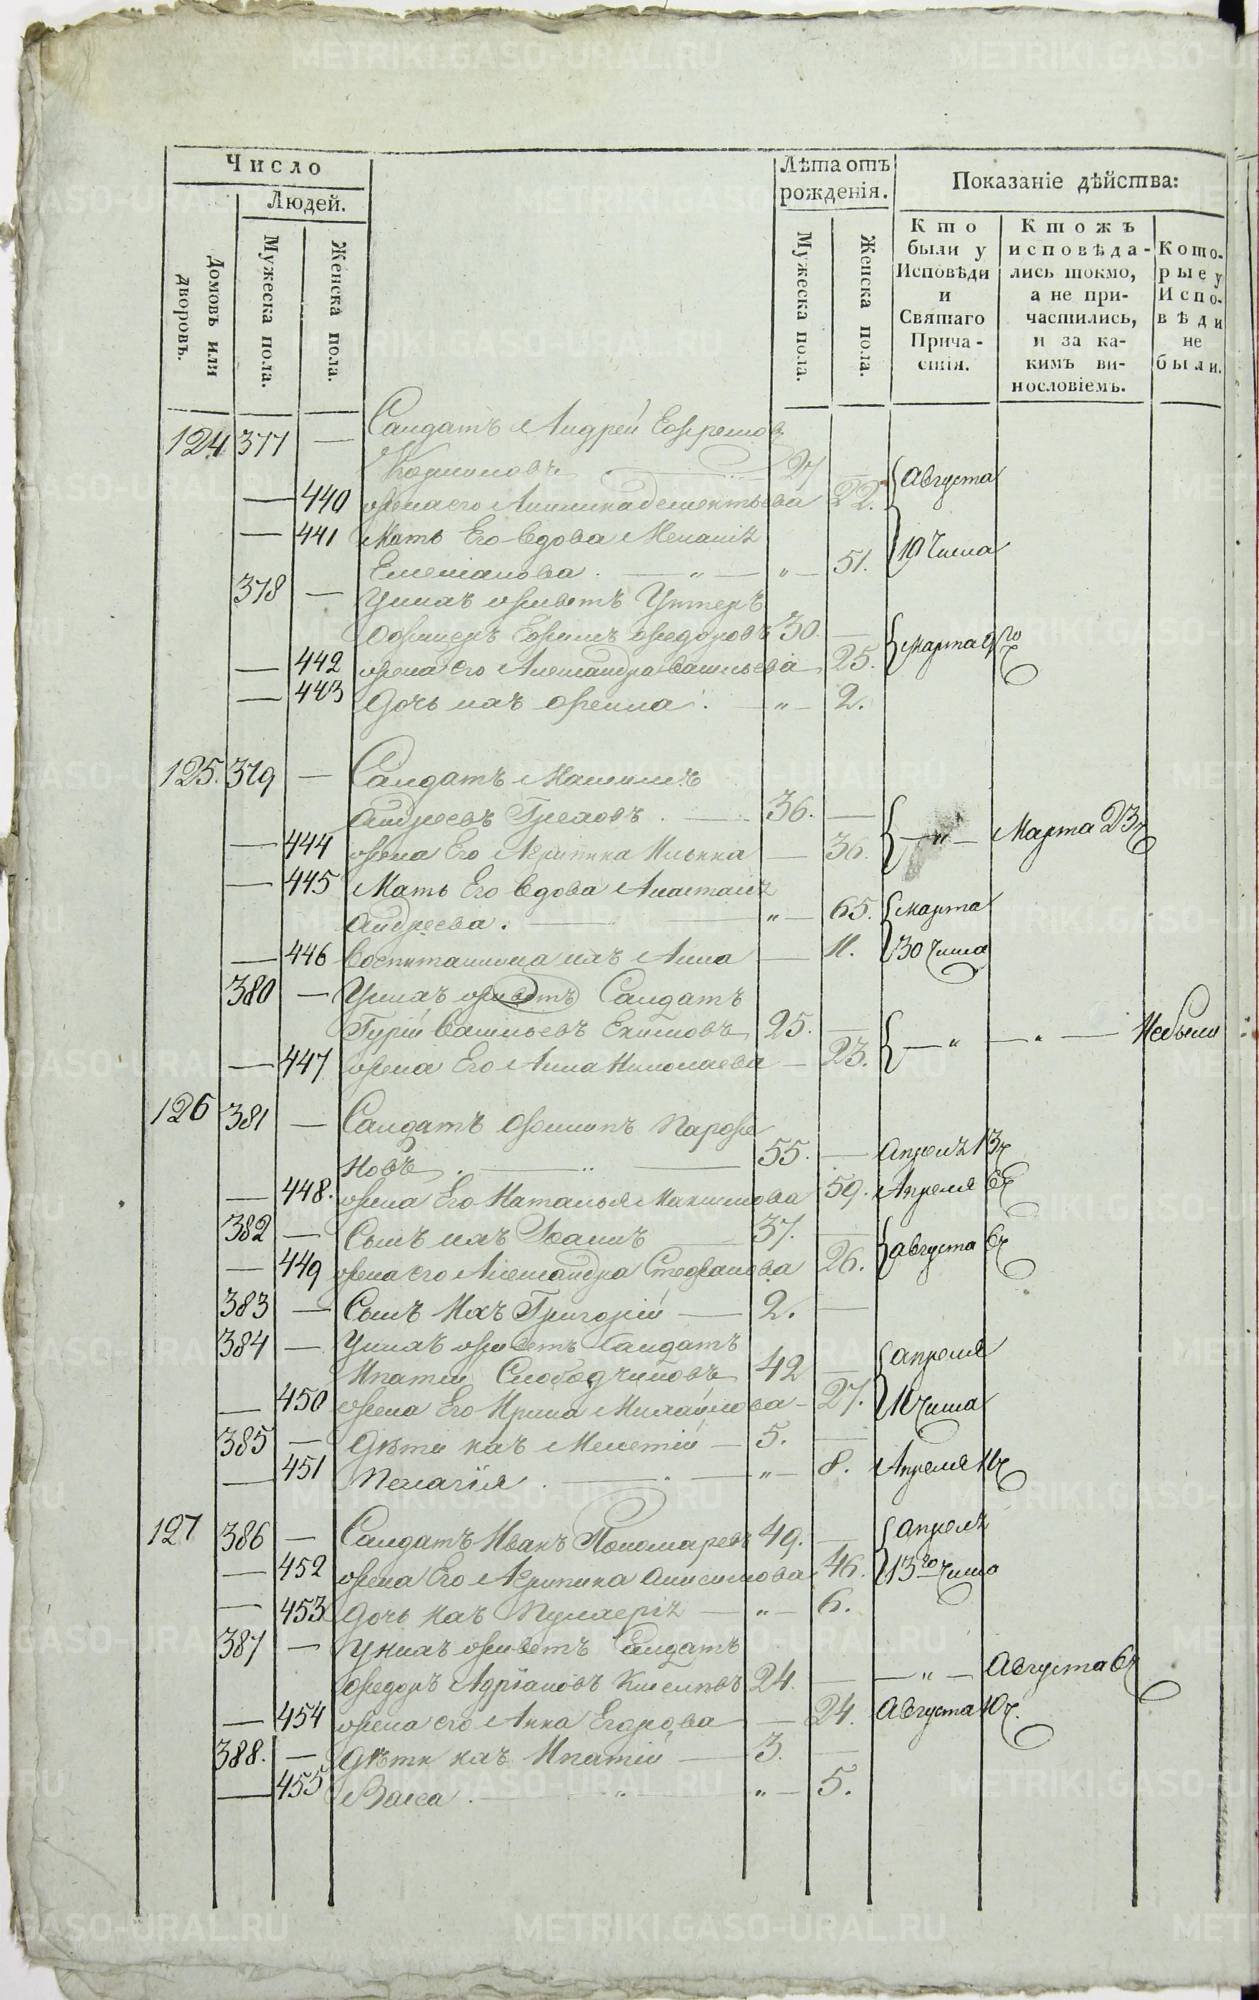 Число
Людей.
Домовъ или дворовъ.
Мужеска пола.
Женска пола.
Лѣта отъ рожденія.
Мужеска пола.
Женска пола.
Показаніе дѣйства:
Кто были у Исповѣди и Святаго Причастія.
Кто жъ исповѣдались токмо, а не причастились, и за какимъ винословіемъ.
Которые у Исповѣди не были.
124 377 — Салдатъ Андрей Ефремовъ
27 — Августа
— 440 жена его Дементьева 22.
— 441 Мать Его вдова Меланія 19 Числа
Емельянова. — „ — „ — 51.
378 — У них живетъ Унтеръ
Офицеръ Ефимъ Федоровъ 30. — Марта 9го
— 442 жена его Александра Васильева 25.
— 443 Дочь ихъ — „ — 2.
125. 379 — Салдатъ Максимъ
Андреевъ Греховъ. — 36. —
— 444 жена Его Агрипина Ильина — 36. — „ — Марта 23
— 445 Мать Его вдова Анастасія
Андреева. — „ — 65. Марта
— 446 Воспитанница ихъ Анна — 11. 30 Числа
380 — У них живетъ Салдатъ
Гурій Васильевъ Екимовъ 25. —
— 447 жена Его Анна Николаева — 23. — „ — „ — Небыли
126 381 — Салдатъ Филипъ Парфе
новъ. — „ — 55. — Апреля 13
— 448. жена Его Наталья Максимова 59. Апреля 6
382 — Сынъ ихъ Іоаннъ — 37. —
— 449 жена его Александра Стефанова 26. Августа 6
383 — Сынъ Ихъ Григорій — 2. —
384 — У них живетъ Салдатъ
Ипатій Слободчиковъ 42 — Апреля
— 450 жена Его Ирина Михайлова — 27. 11 Числа
385 — Дѣти ихъ Мелетій — 5. —
— 451 Пелагія. — „ — 8. Апреля 11
127 386 — Салдатъ Иванъ Пономаревъ 49. — Апреля
— 452 жена Его Агрипина Анисимова 46. 13го Числа
— 453 Дочь ихъ Пулхерія — „ — 6.
387 — У них живетъ Салдатъ
Федоръ Адріановъ 24. — — „ — Августа 6
— 454 жена его Анна Егорова — 24. Августа 10
388. — Дѣти ихъ Ипатій — 3. —
— 455 Васса. — „ — „ — 5.
METRIKI.GASO-URAL.RU